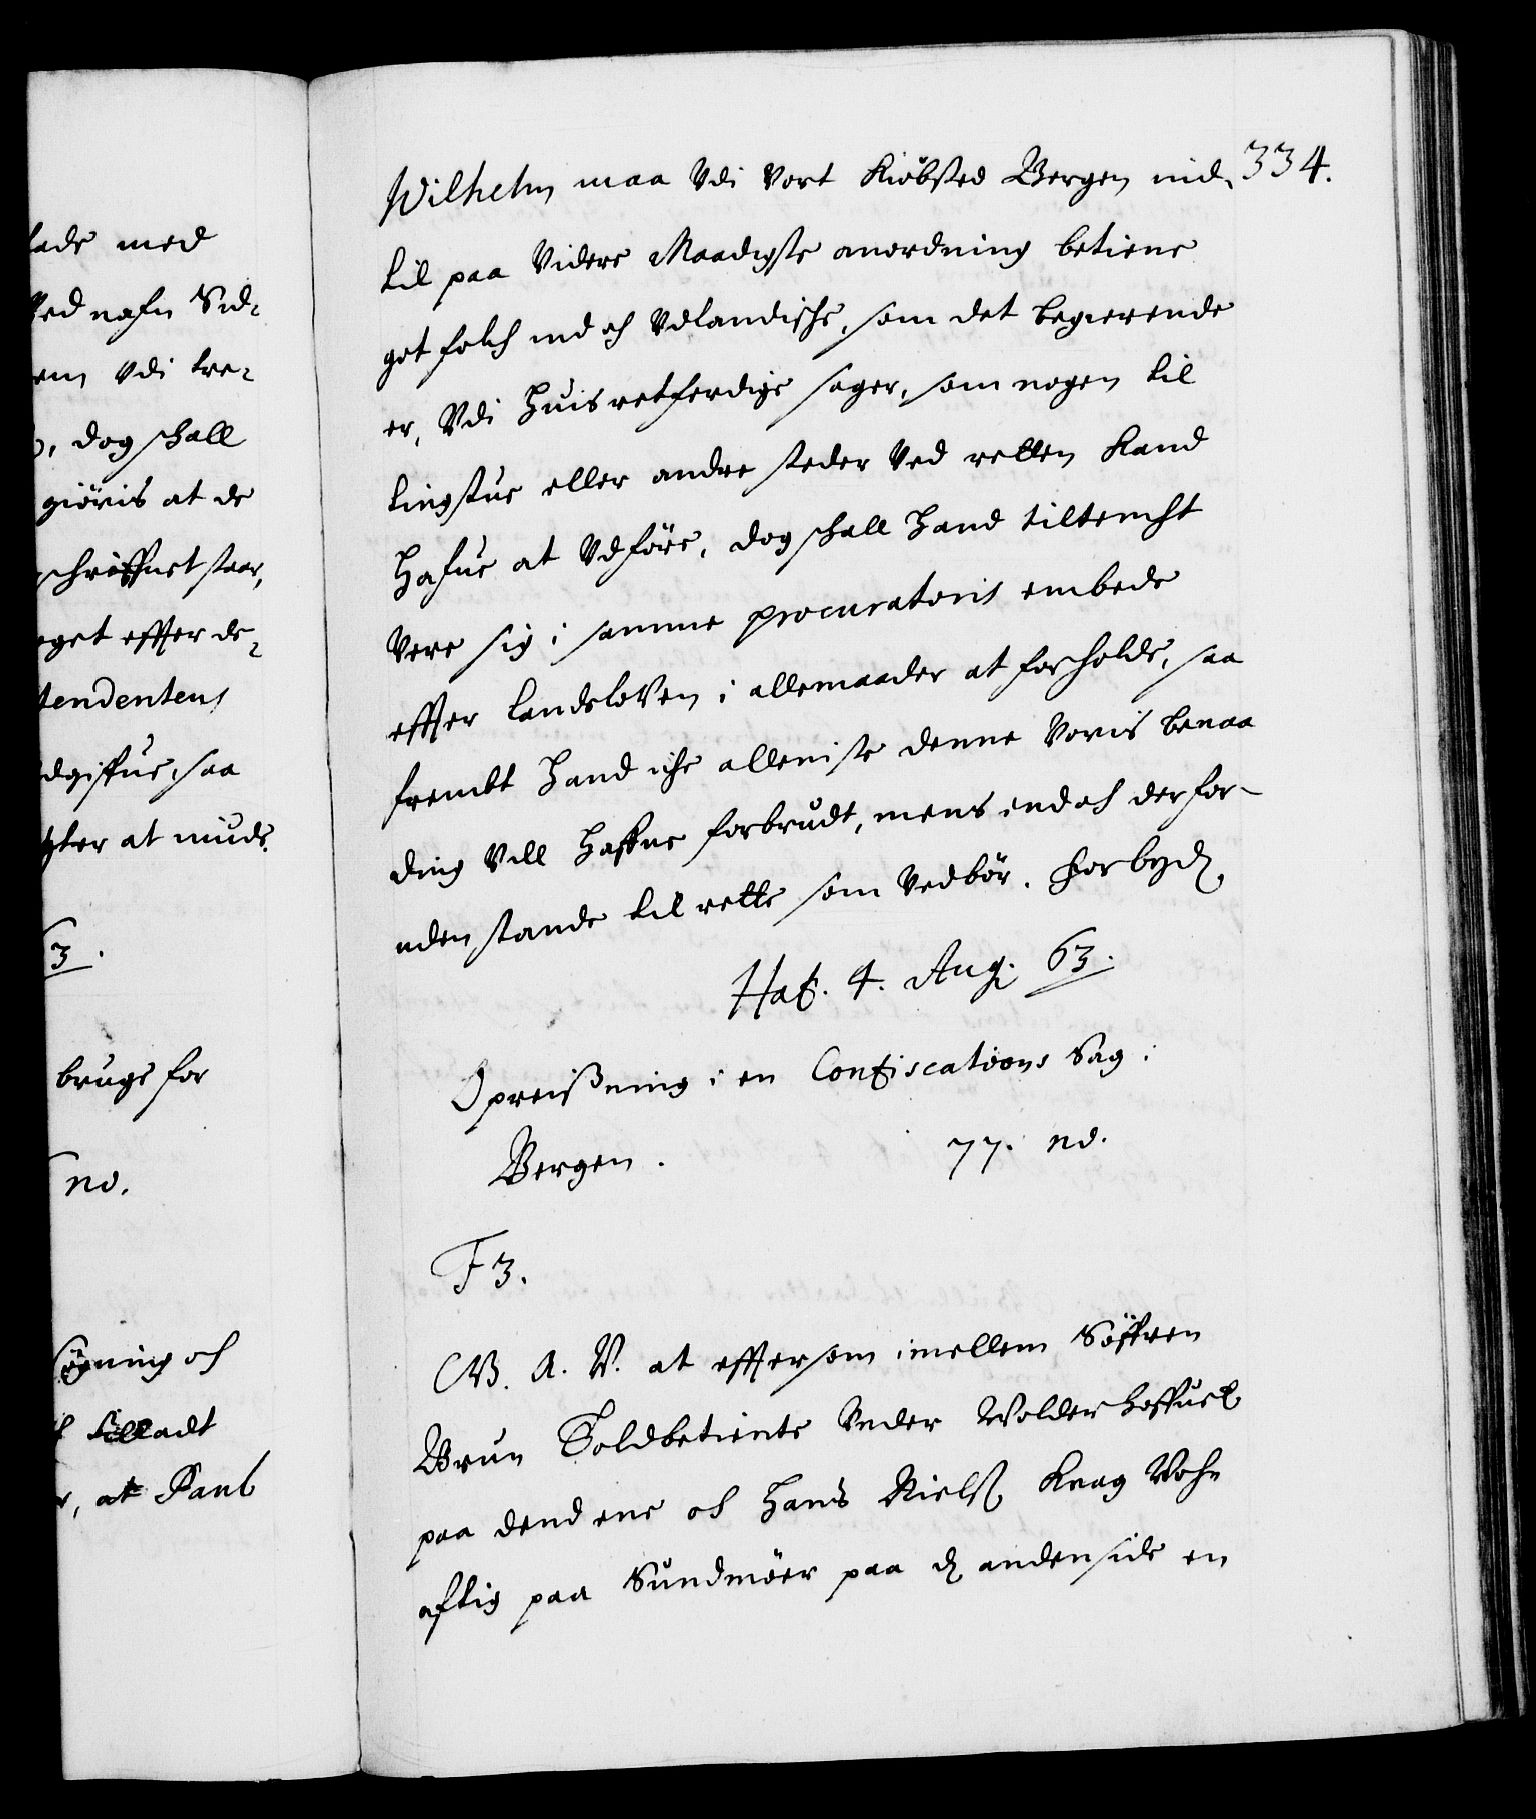 lade med
Ved nafn Sid¸
em Vdi tre¸
dog schall
giöris at de
schreffuet staar,
get effter de¸
tendentens
dgiffue, saa
gter at niude.
63.
brugs for
no.
söening och
tilladt
, at Paul
334.
Wilhelm maa Vdi Vort Kiöbsted Bergen ind¸
til paa Videre Naadigste anordning betiene
got folch ind och Vdlandische, som det begierende
er, Vdi huis retferdige sager, som nogen til
tingstue eller andre steder Ved retten kand
hafue at Vdföre, dog schall hand tiltencht
Vere sig i samme procuratoris embede
effter landsloVen i allemaader at forholde, saa
frembt hand iche alleniste denne Voris benaa
ding Vill haffue forbrudt, mens endoch derfor-
uden stande til rette som Vedbör. Forbyd
Haf. 4. Aug. 63.
Opreisning i en Confiscations Sag i
Bergen. 77. no.
F3.
G. A. V. at effter som imellem Söffren
Brun Toldbetiente Under Wolderhoffuet
paa dend ene och Hans Nielss Krag Vohn
afftig paa Sundmöer paa d anden side en